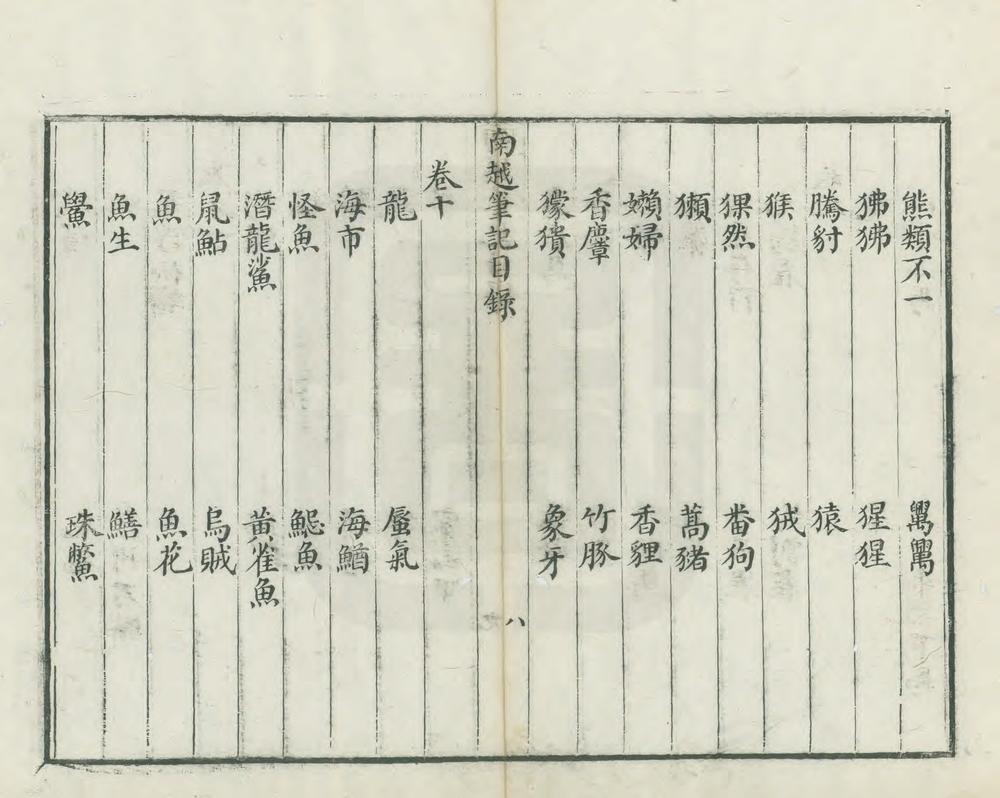 熊類不一
狒狒 猩猩
騰豺 猿
猴 狨
猓然 畨狗
獺 蒿豬
嬾婦 香貍
香麞 竹豚
獴 象牙
南越筆記目錄 八
卷十
龍 蜃氣
海市 海鰌
怪魚 魚
潛龍鯊 黃雀魚
鼠鮎 烏賊
魚 魚花
魚生 鱔
鱟 珠鱉